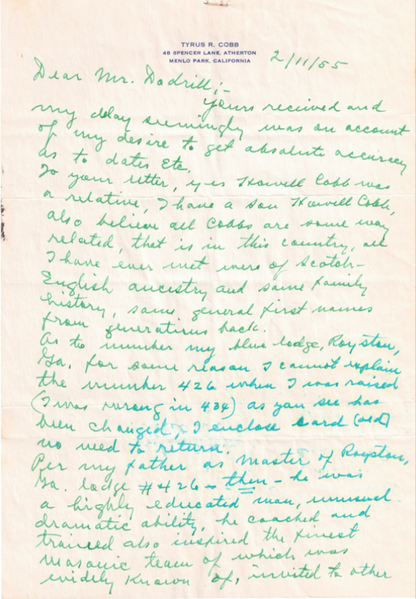 TYRUS R. COBB
48 SPENCER LANE, ATHERTON
MENLO PARK, CALIFORNIA
2/11/55
Dear Mr. Dodrill;-
Yours received and
my delay seemingly was on account
of my desire to get absolute accuracy
as to dates etc.
To your letter, yes Howell Cobb was
a relative, I have a son Howell Cobb,
also believe all Cobbs are some way
related, that is in this country, all
I have ever met were of Scotch-
English ancestry and same family
history, same general first names
from generations back.
As to number my blue lodge, Royston,
Ga. for some reason I cannot explain
the number 426 when I was raised
(I was wrong in 434) as you see has
been changed, I enclose card (old)
no need to return.
Per my father as master of Royston,
Ga. lodge #426 - then - he was
a highly educated man, unusual
dramatic ability, he coached and
trained also inspired the finest
Masonic team of which was
widely known of, invited to other